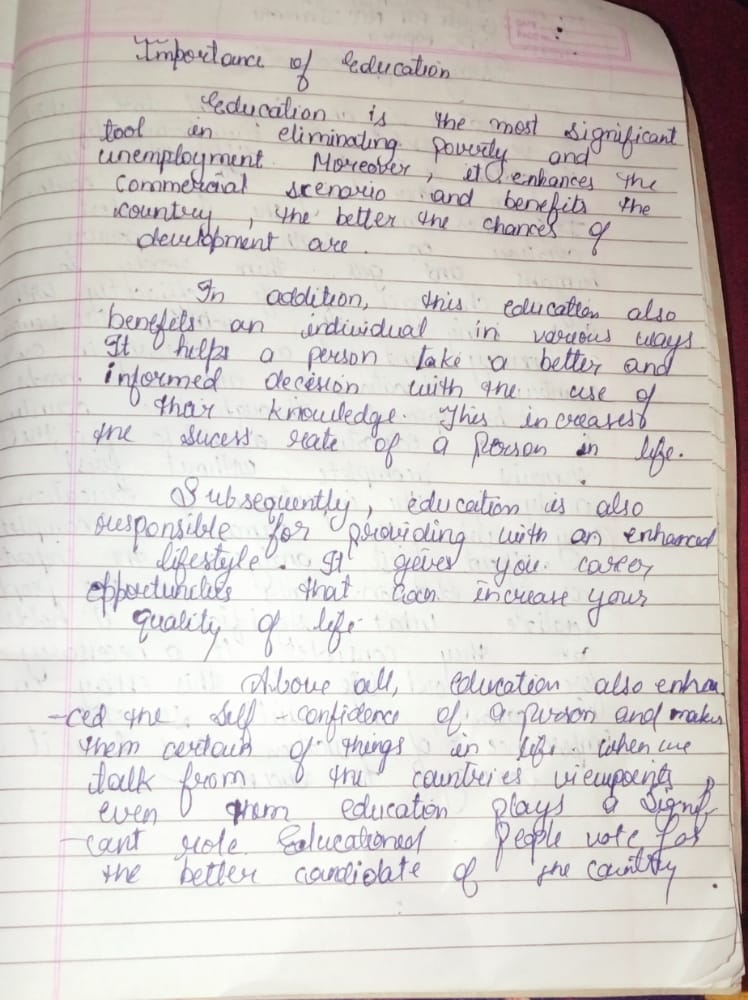 Importance of Education
Education is the most significant
tool in eliminating poverty and
unemployment. Moreover, it enhances the
commercial scenario and benefits the
country, the better the chances of
development are.
In addition, this education also
benefits an individual in various ways
It helps a person take a better and
informed decision with the use of
their knowledge. This increases
the sucess rate of a person in life.
Subsequently, education is also
responsible for providing with an enhanced
lifestyle. It gives you career
opportunities that can increase your
quality of life.
Above all, education also enhan
-ced the self-confidence of a person and makes
them certain of things in life. when we
talk from the countries viewpoints,
even them education plays a signifi
-cant role. Educationed People vote for
the better candidate of the country.